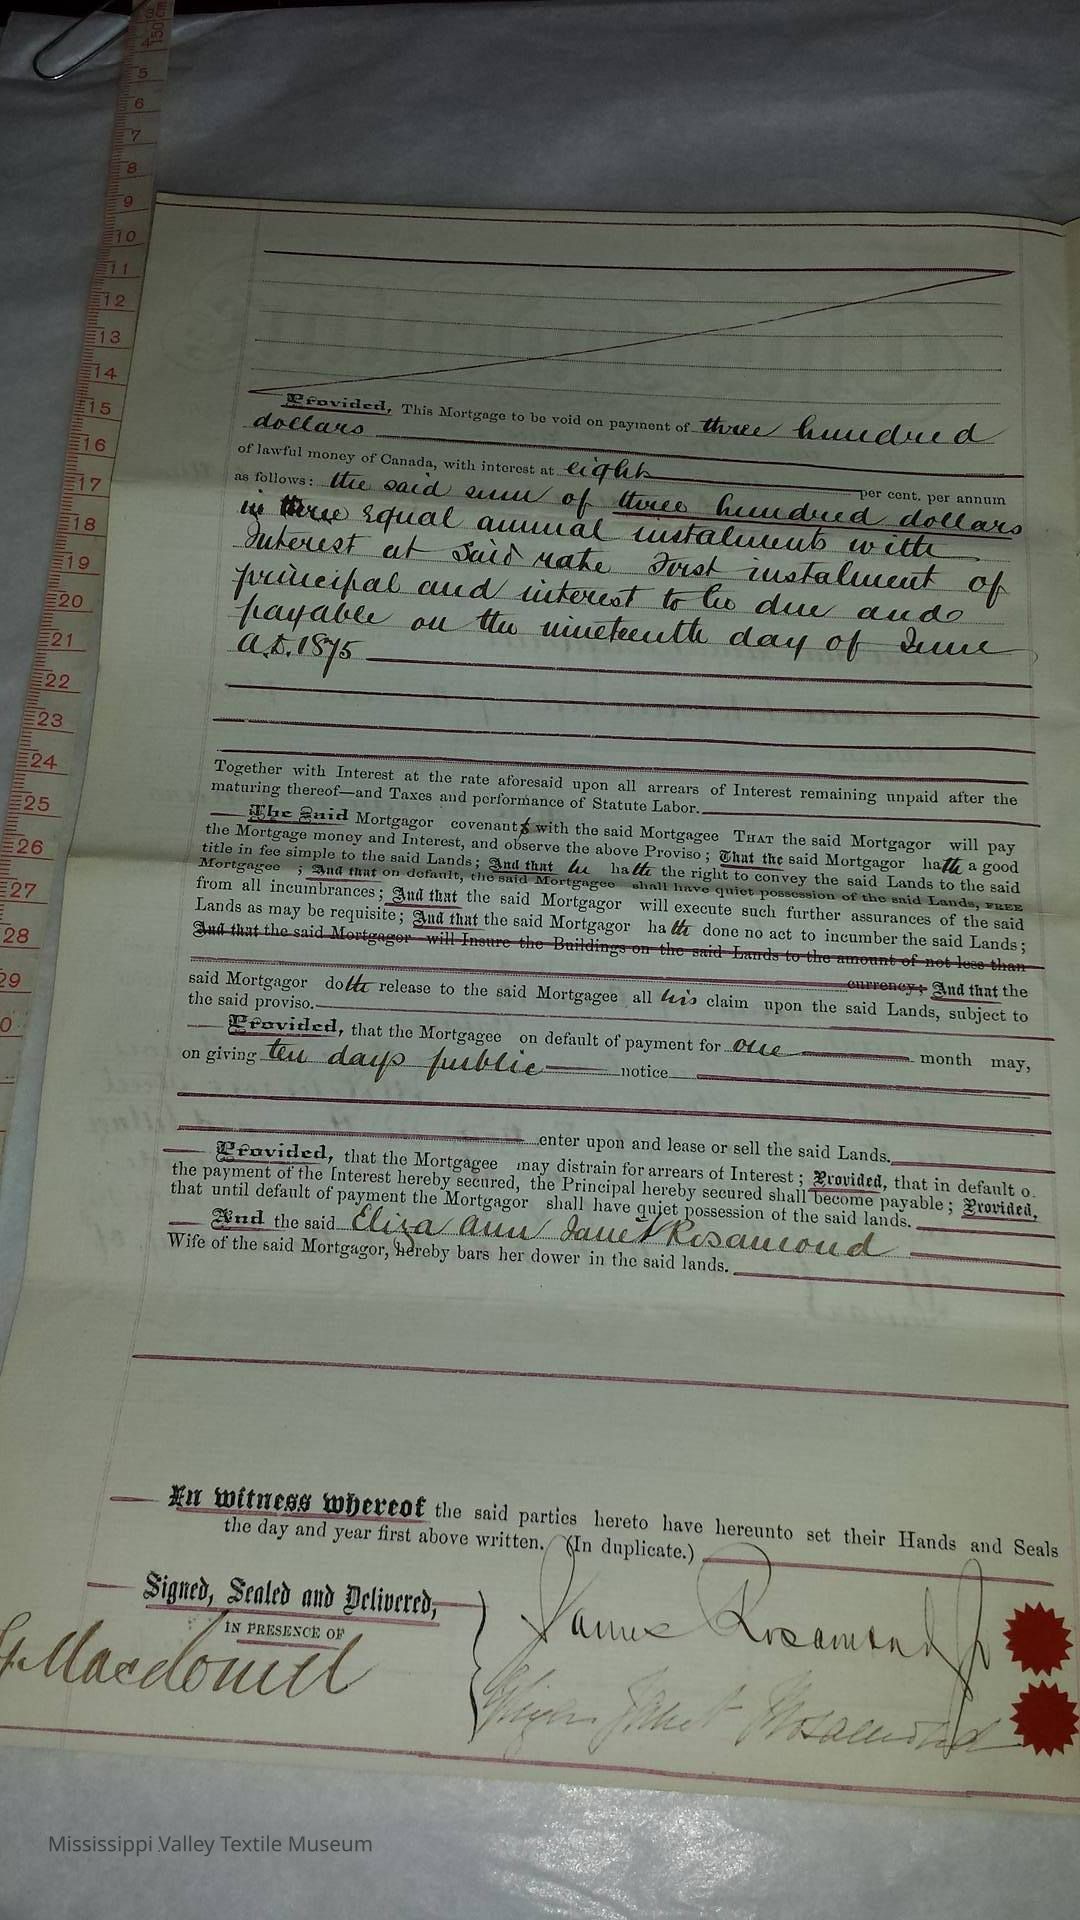 150
5
6
7
8
9
10
11
12
13
14
15
16
17
18
19
20
21
22
23
24
25
26
27
28
29
0
Provided, This Mortgage to be void on payment of three hundred
dollars
of lawful money of Canada, with interest at eight per cent. per annum
as follows: the said sum of three hundred dollars
in three equal annual instalments with
Interest at said rate First instalment of
principal and interest to be due and
payable on the nineteenth day of June
A.D. 1875
Together with Interest at the rate aforesaid upon all arrears of Interest remaining unpaid after the
maturing thereof—and Taxes and performance of Statute Labor.
The Said Mortgagor covenants with the said Mortgagee THAT the said Mortgagor will pay
the Mortgage money and Interest, and observe the above Proviso; That the said Mortgagor hath a good
title in fee simple to the said Lands; And that he hath the right to convey the said Lands to the said
Mortgagee ; And that on default, the said Mortgagee shall have quiet possession of the said Lands, FREE
from all incumbrances; And that the said Mortgagor will execute such further assurances of the said
Lands as may be requisite; And that the said Mortgagor hath done no act to incumber the said Lands;
And that the said Mortgagor will Insure the Buildings on the said Lands to the amount of not less than
currency; And that the
said Mortgagor doth release to the said Mortgagee all his claim upon the said Lands, subject to
the said proviso.
Provided, that the Mortgagee on default of payment for one month may,
on giving ten days public notice
enter upon and lease or sell the said Lands.
Provided, that the Mortgagee may distrain for arrears of Interest; Provided, that in default o
the payment of the Interest hereby secured, the Principal hereby secured shall become payable; Provided,
that until default of payment the Mortgagor shall have quiet possession of the said lands.
And the said Eliza Ann Janet Rosamond
Wife of the said Mortgagor, hereby bars her dower in the said lands.
In witness whereof the said parties hereto have hereunto set their Hands and Seals
the day and year first above written. (In duplicate.)
Signed, Sealed and Delivered,
IN PRESENCE OF
James Rosamond Jr
Macdonell
Janet Rosamond
Mississippi Valley Textile Museum